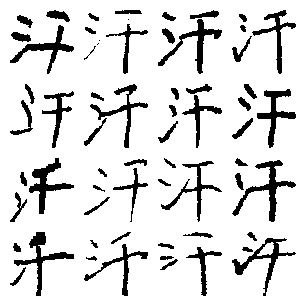 汗汗汗汗
汗汗汗汗
汗汗汗汗
汗汗汗汗